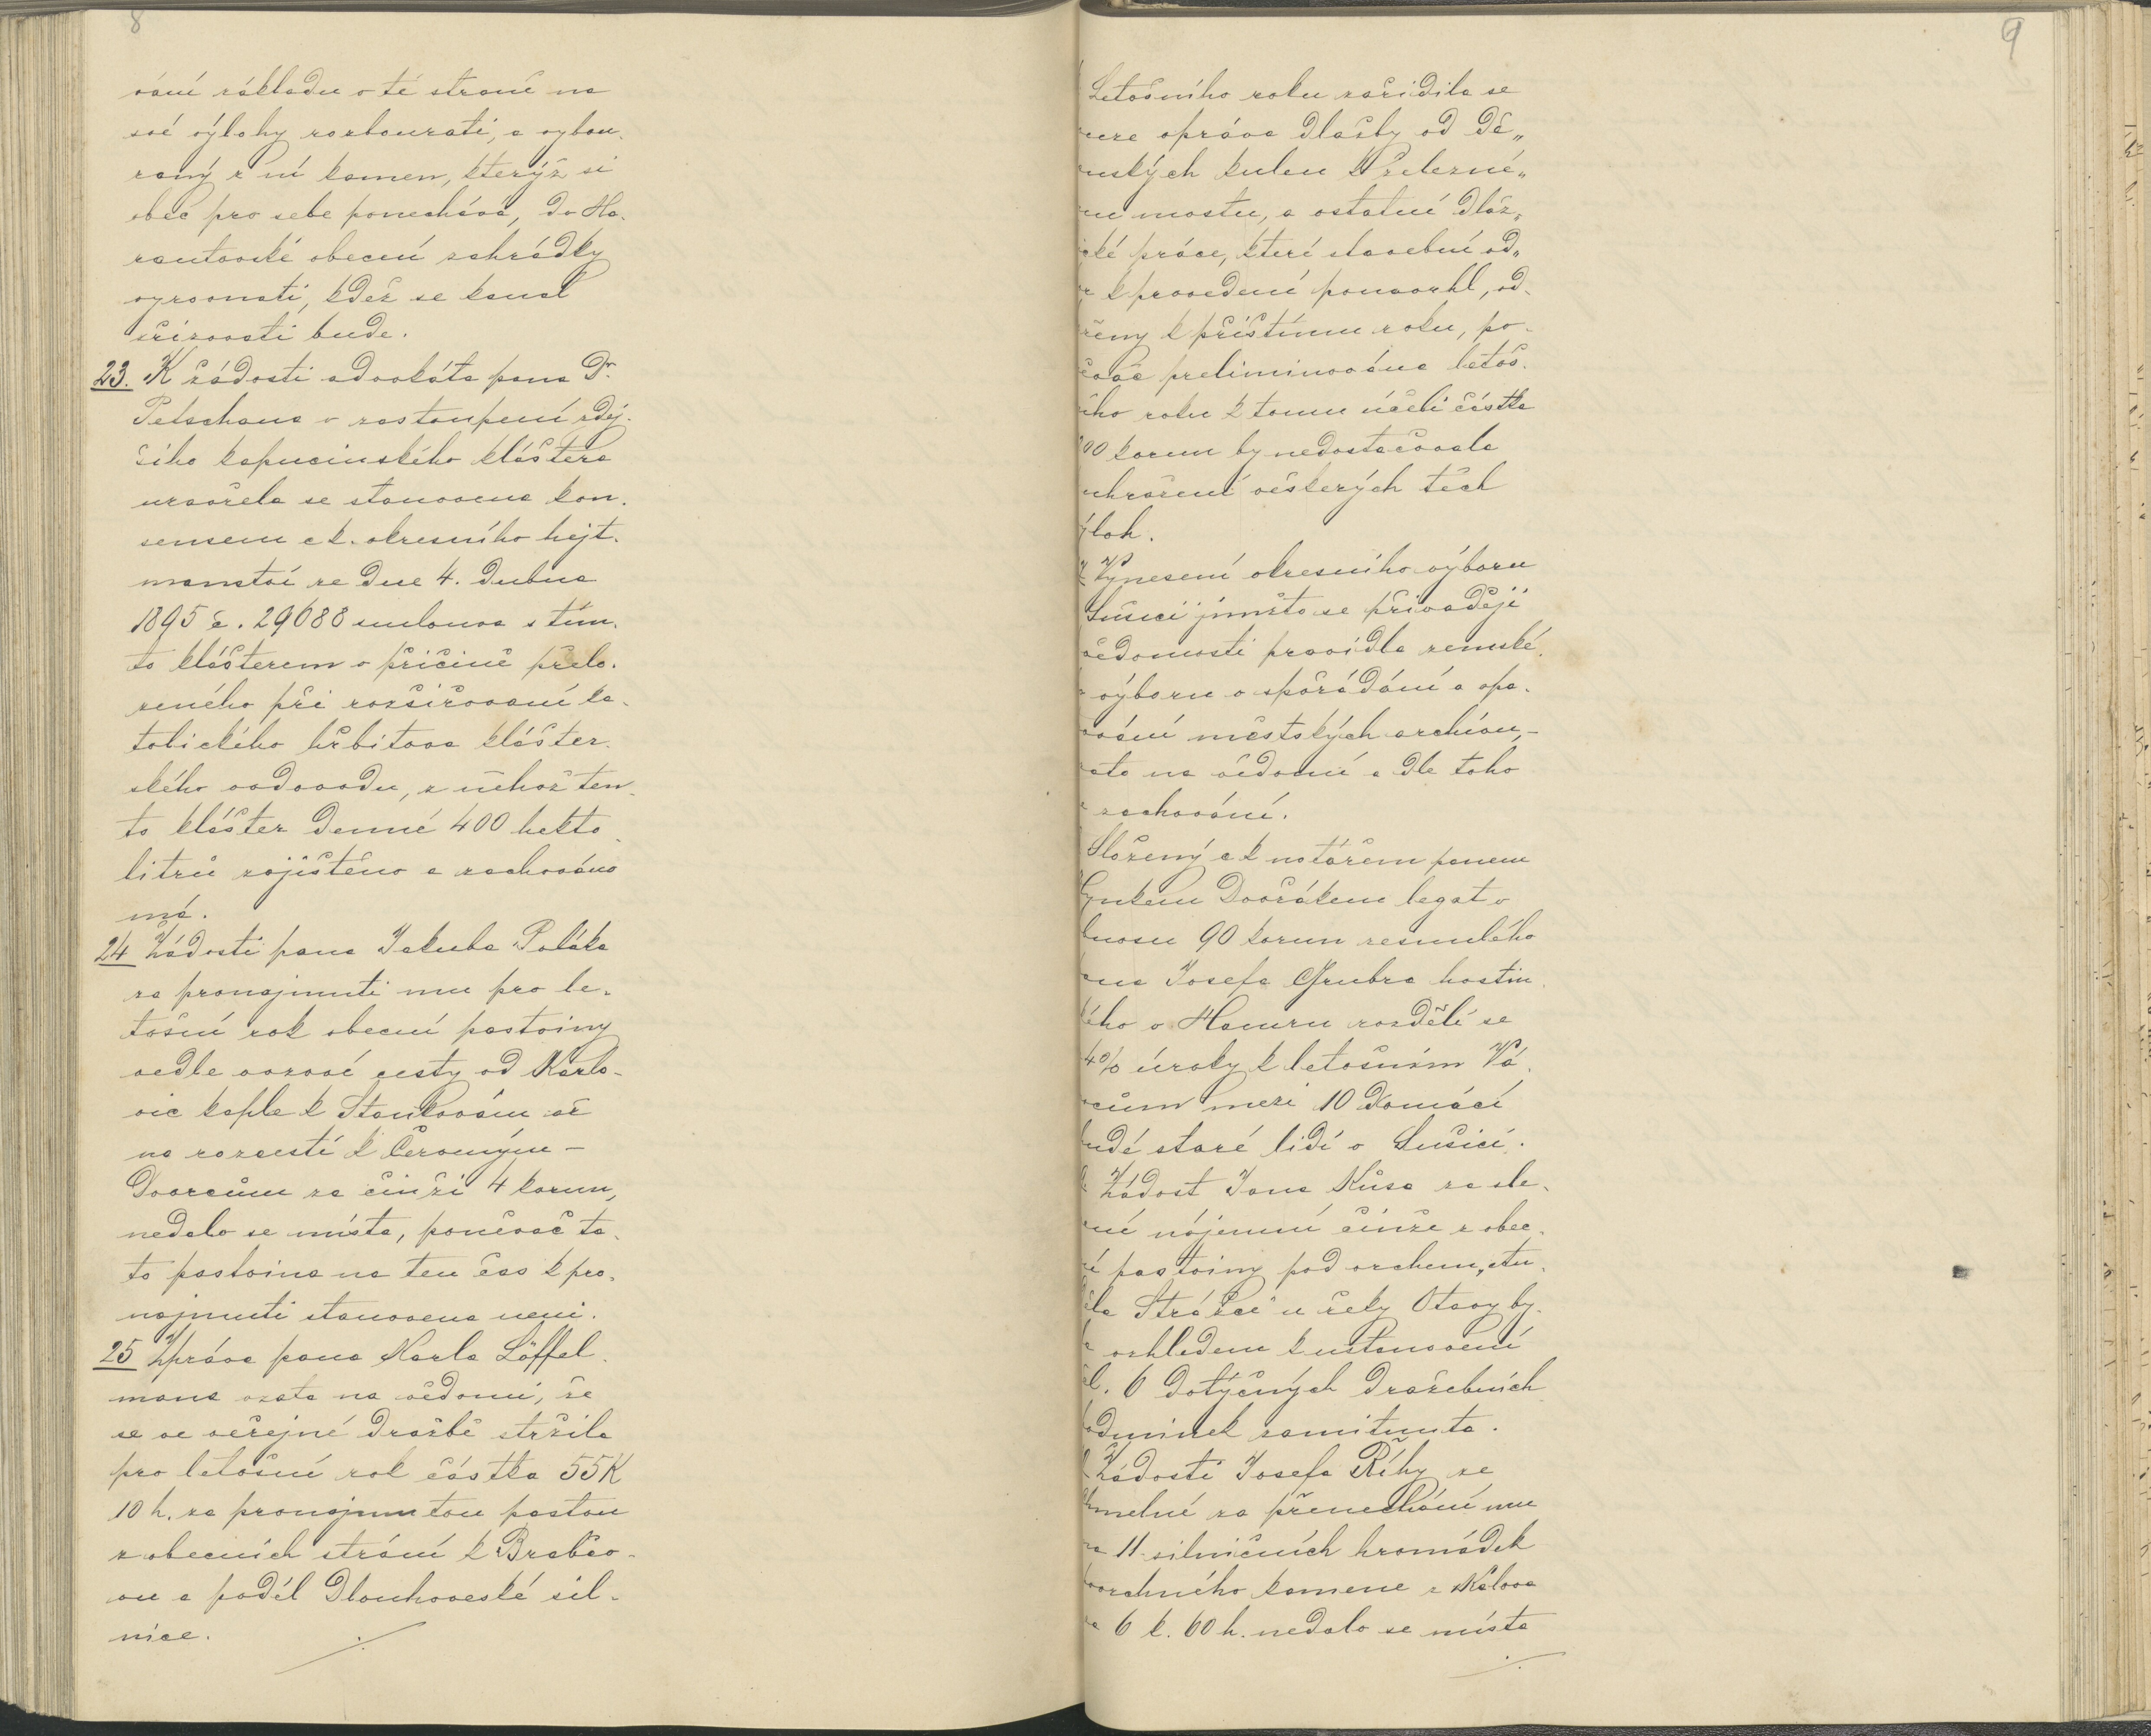 8
vání základu v té straně na
své výlohy rozbourati, a vybou-
raný z ní kamen, kterýž si
obec pro sebe ponechává, do Ha-
rantovské obecní zahrádky
vyrovnati, kdež se kanal
zřizovati bude.
23. K žádosti advokáta pana Dr.
Petschana v zastoupení zdej-
šího kapucinského kláštera
uzavřela se stanovena kon-
sensem c k. okresního hejt-
manství ze dne 4. dubna
1895 č. 29688 smlouva s tím-
to klášterem v příčině přelo-
ženého při rozšiřovaní ka-
tolického hřbitova klášter-
ského vodovodu, z něhož ten-
to klášter denně 400 hekto-
litrů zajištěno a zachováno
má.
24 Žádosti pana Jakuba Poláka
za pronajmutí mu pro le-
tošní rok obecní pastviny
vedle vozové cesty od Karlo-
vic kaple k Stankovům až
na rozcestí k Červeným-
Dvorcům za činži 4 korun,
nedalo se místa, poněvač ta-
to pastvina na ten čas k pro-
najmutí stanovena neni.
25 Zpráva pana Karla Löffel-
mana vzata na vědomí, že
se ve veřejné dražbě stržila
pro letošní rok částka 55K
10 h. za pronajmutou pastvu
z obecních strání k Brabčo-
vu a podél Dlouhoveské sil-
nice.
./.
9
Letošního roku zařidila se
uze oprava dlažby od Dě„
nských kulen k železné„
mu mostu, a ostatní dláž„
ské práce, které stavební od„
k provedení ponavrhl, od-
ženy k příštímu roku, po-
evač preliminována letoš-
ího roku k tomu účeli částka
00 korun by nedostačovala
uhražení veškerých těch
loh.
Vynesení okresního výboru
Sušici jímžto se přivadějí
vědomosti pravidla zemské-
výboru o spořádání a opa-
ování městských archivu,-
ato na vědomí a dle toho
zachování.
Složený c k notářem panem
ynkem Dvořákem legat v
bnosu 90 korun zesnulého
na Josefa Grubra hostin-
kého v Hamru rozdělí se
4% úroky k letošním Vá-
ocům mezi 10 domácí
udé staré lidi v Sušici.
Žádost Jana Kůsa za sle-
ní nájemní činže z obec-
í pastviny pod vrchem „stu-
la Stražcí u řeky Otavy by-
vzhledem k ustanovení
čl. 6 dotyčných dražebních
odminek zamítnuta.
Žádosti Josefa Říhy ze
hmelné za přenechání mu
11 silničních hromádek
ovrchního kamene z Kalova
6 k. 60 h. nedalo se místa
./.